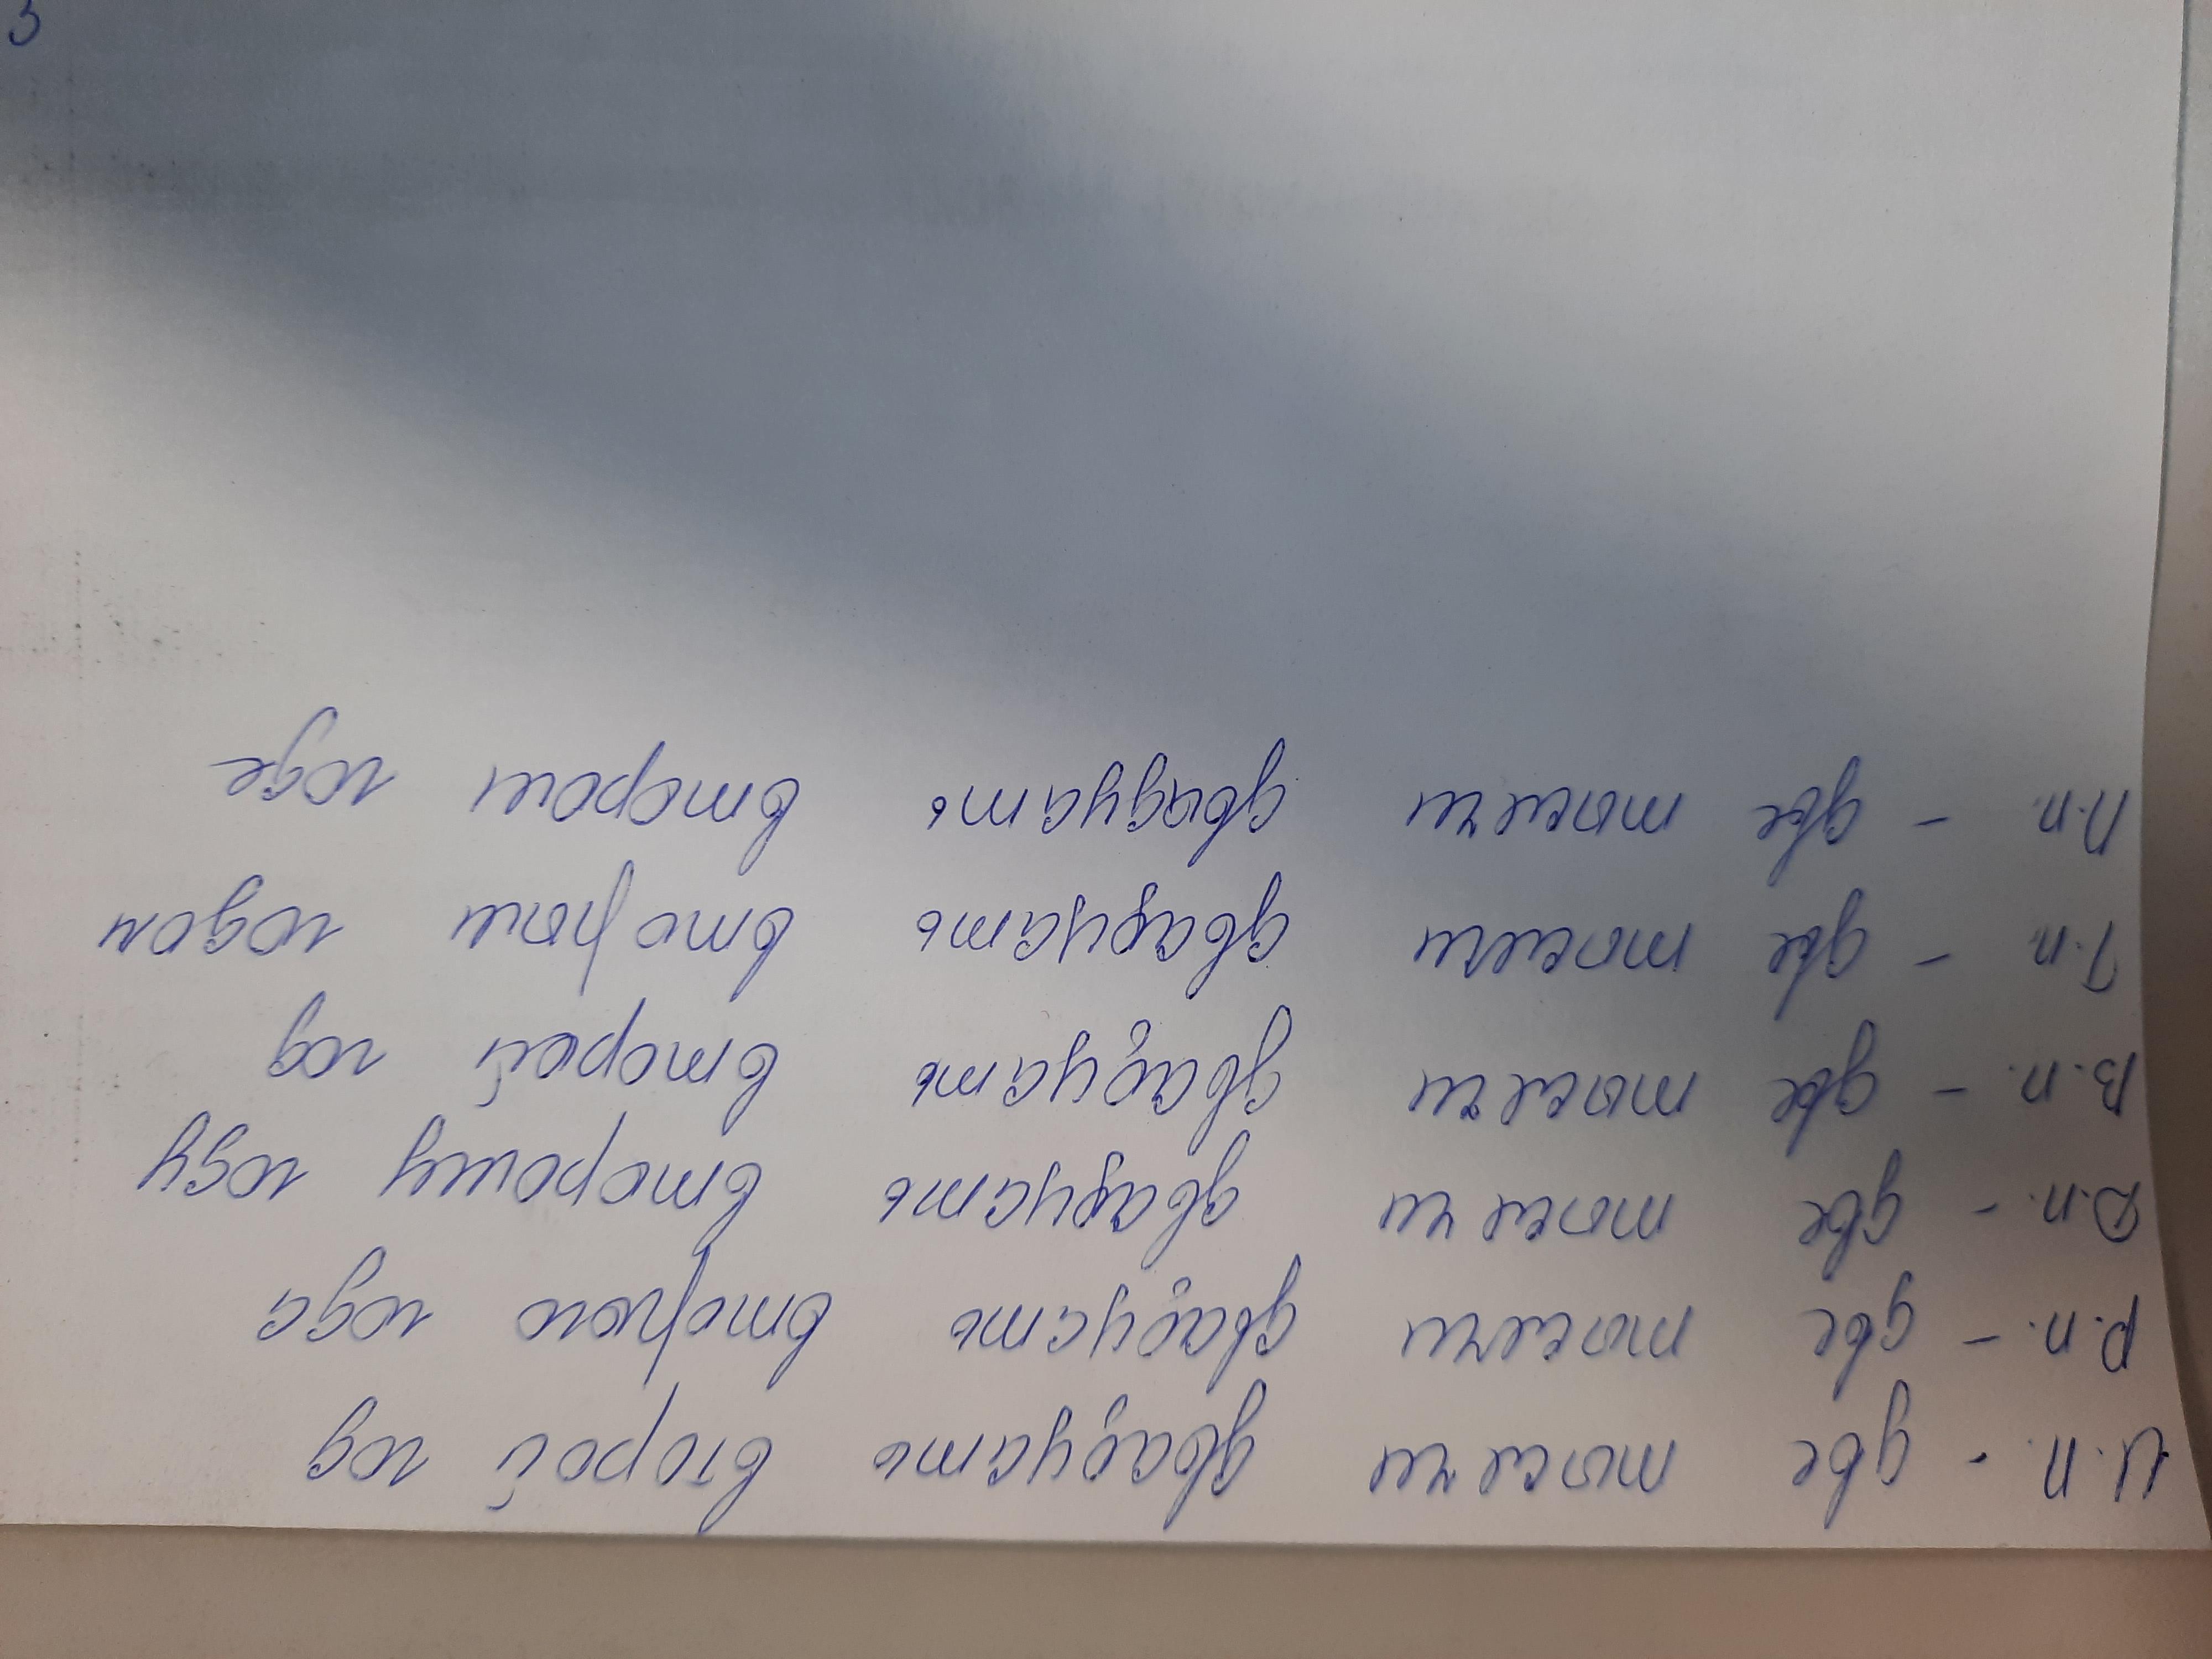 И.п. - две тысячи двадцать второй год
Р.п. - две тысячи двадцать второго года
Д.п. - две тысячи двадцать второму году
В.п. - две тысячи двадцать второй год
Т.п. - две тысячи двадцать вторым годом
П.п. - две тысячи двадцать втором годе